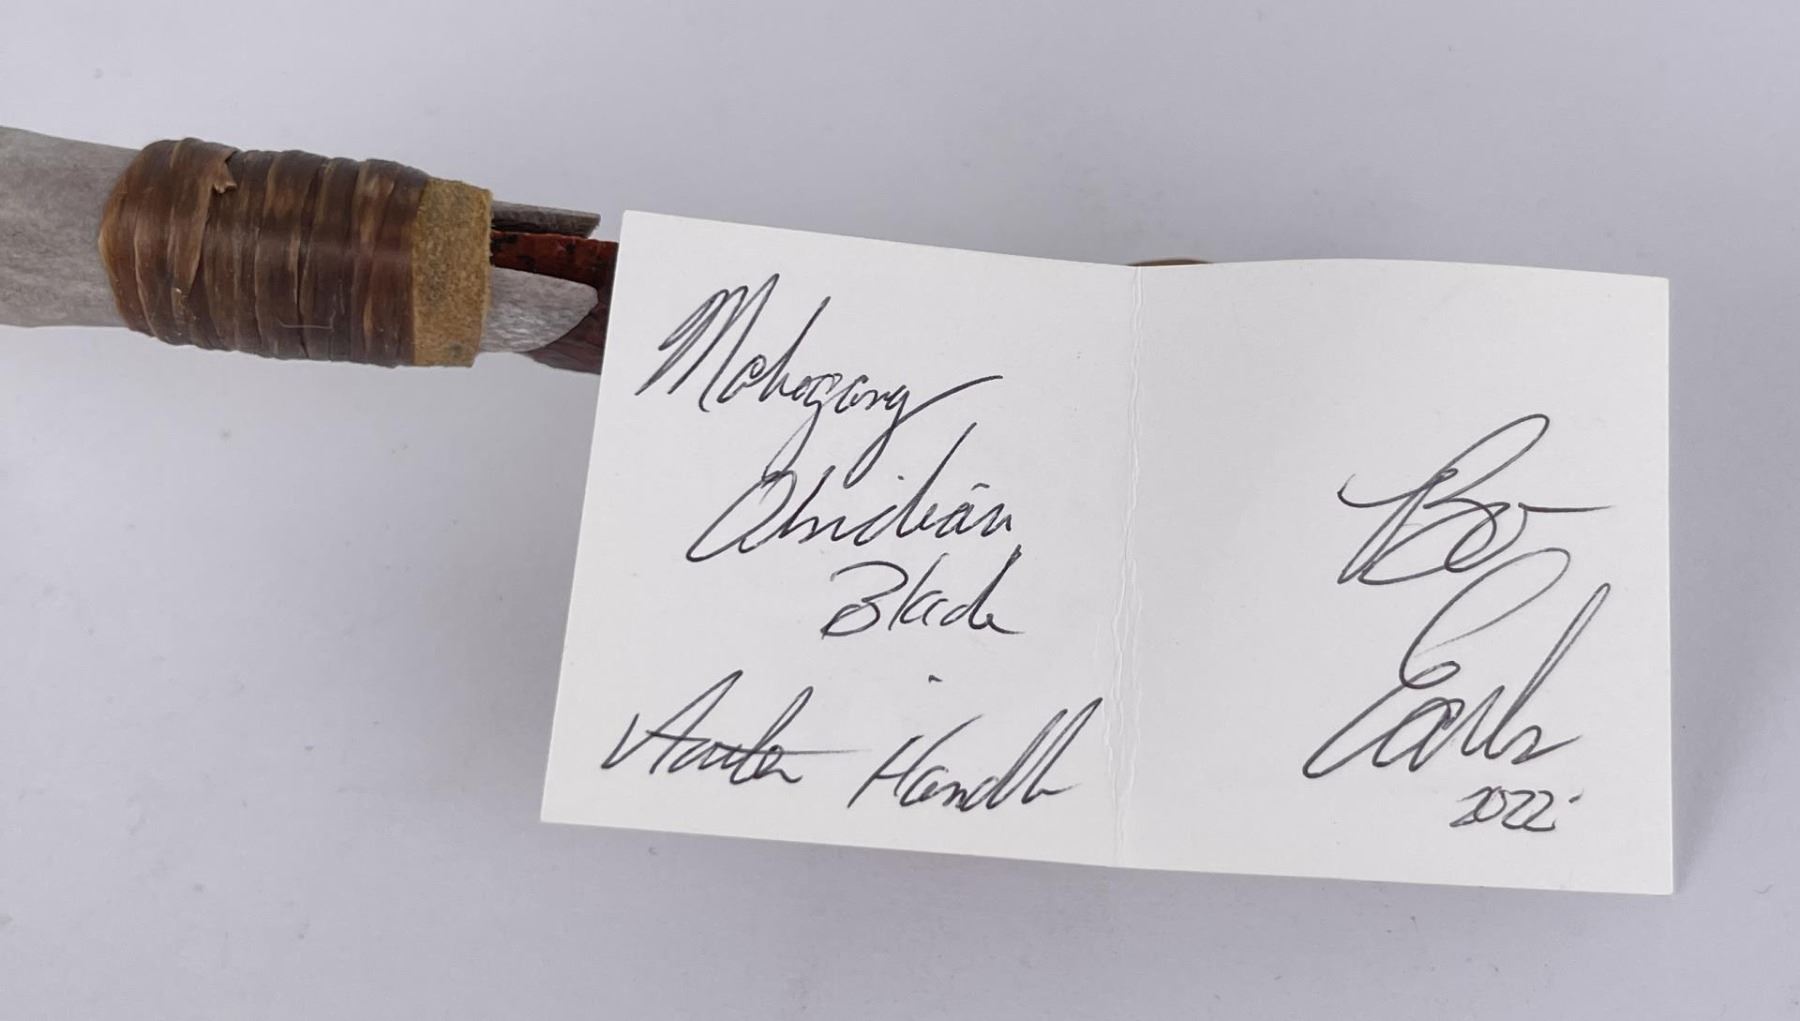 Mahogany
Obsidian
Blade
Antler Handle
Bo
Earls
2022